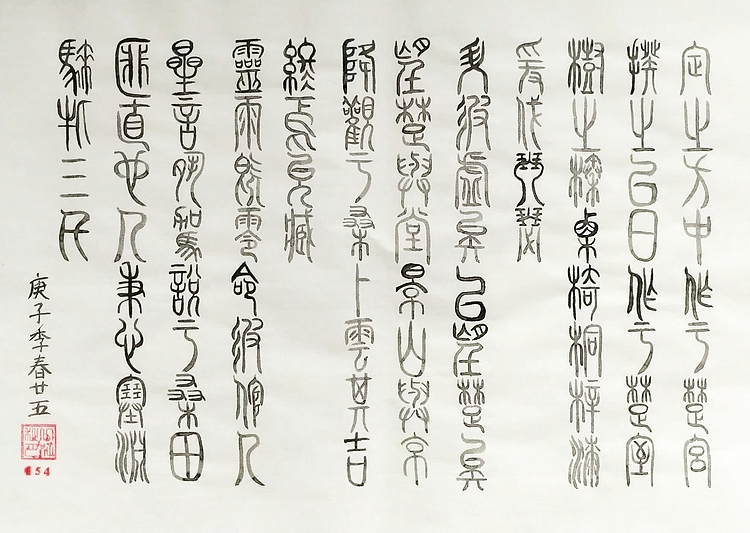 定之方中作于楚宮
揆之以日作于楚室
樹之榛栗椅桐梓漆
爰伐琴瑟
升彼虛矣以望楚矣
望楚與堂景山與京
降觀于桑卜雲其吉
終焉允臧
靈雨既零命彼倌人
星言夙駕說于桑田
匪直也人秉心塞淵
騋牝三千
庚子季春廿五
54